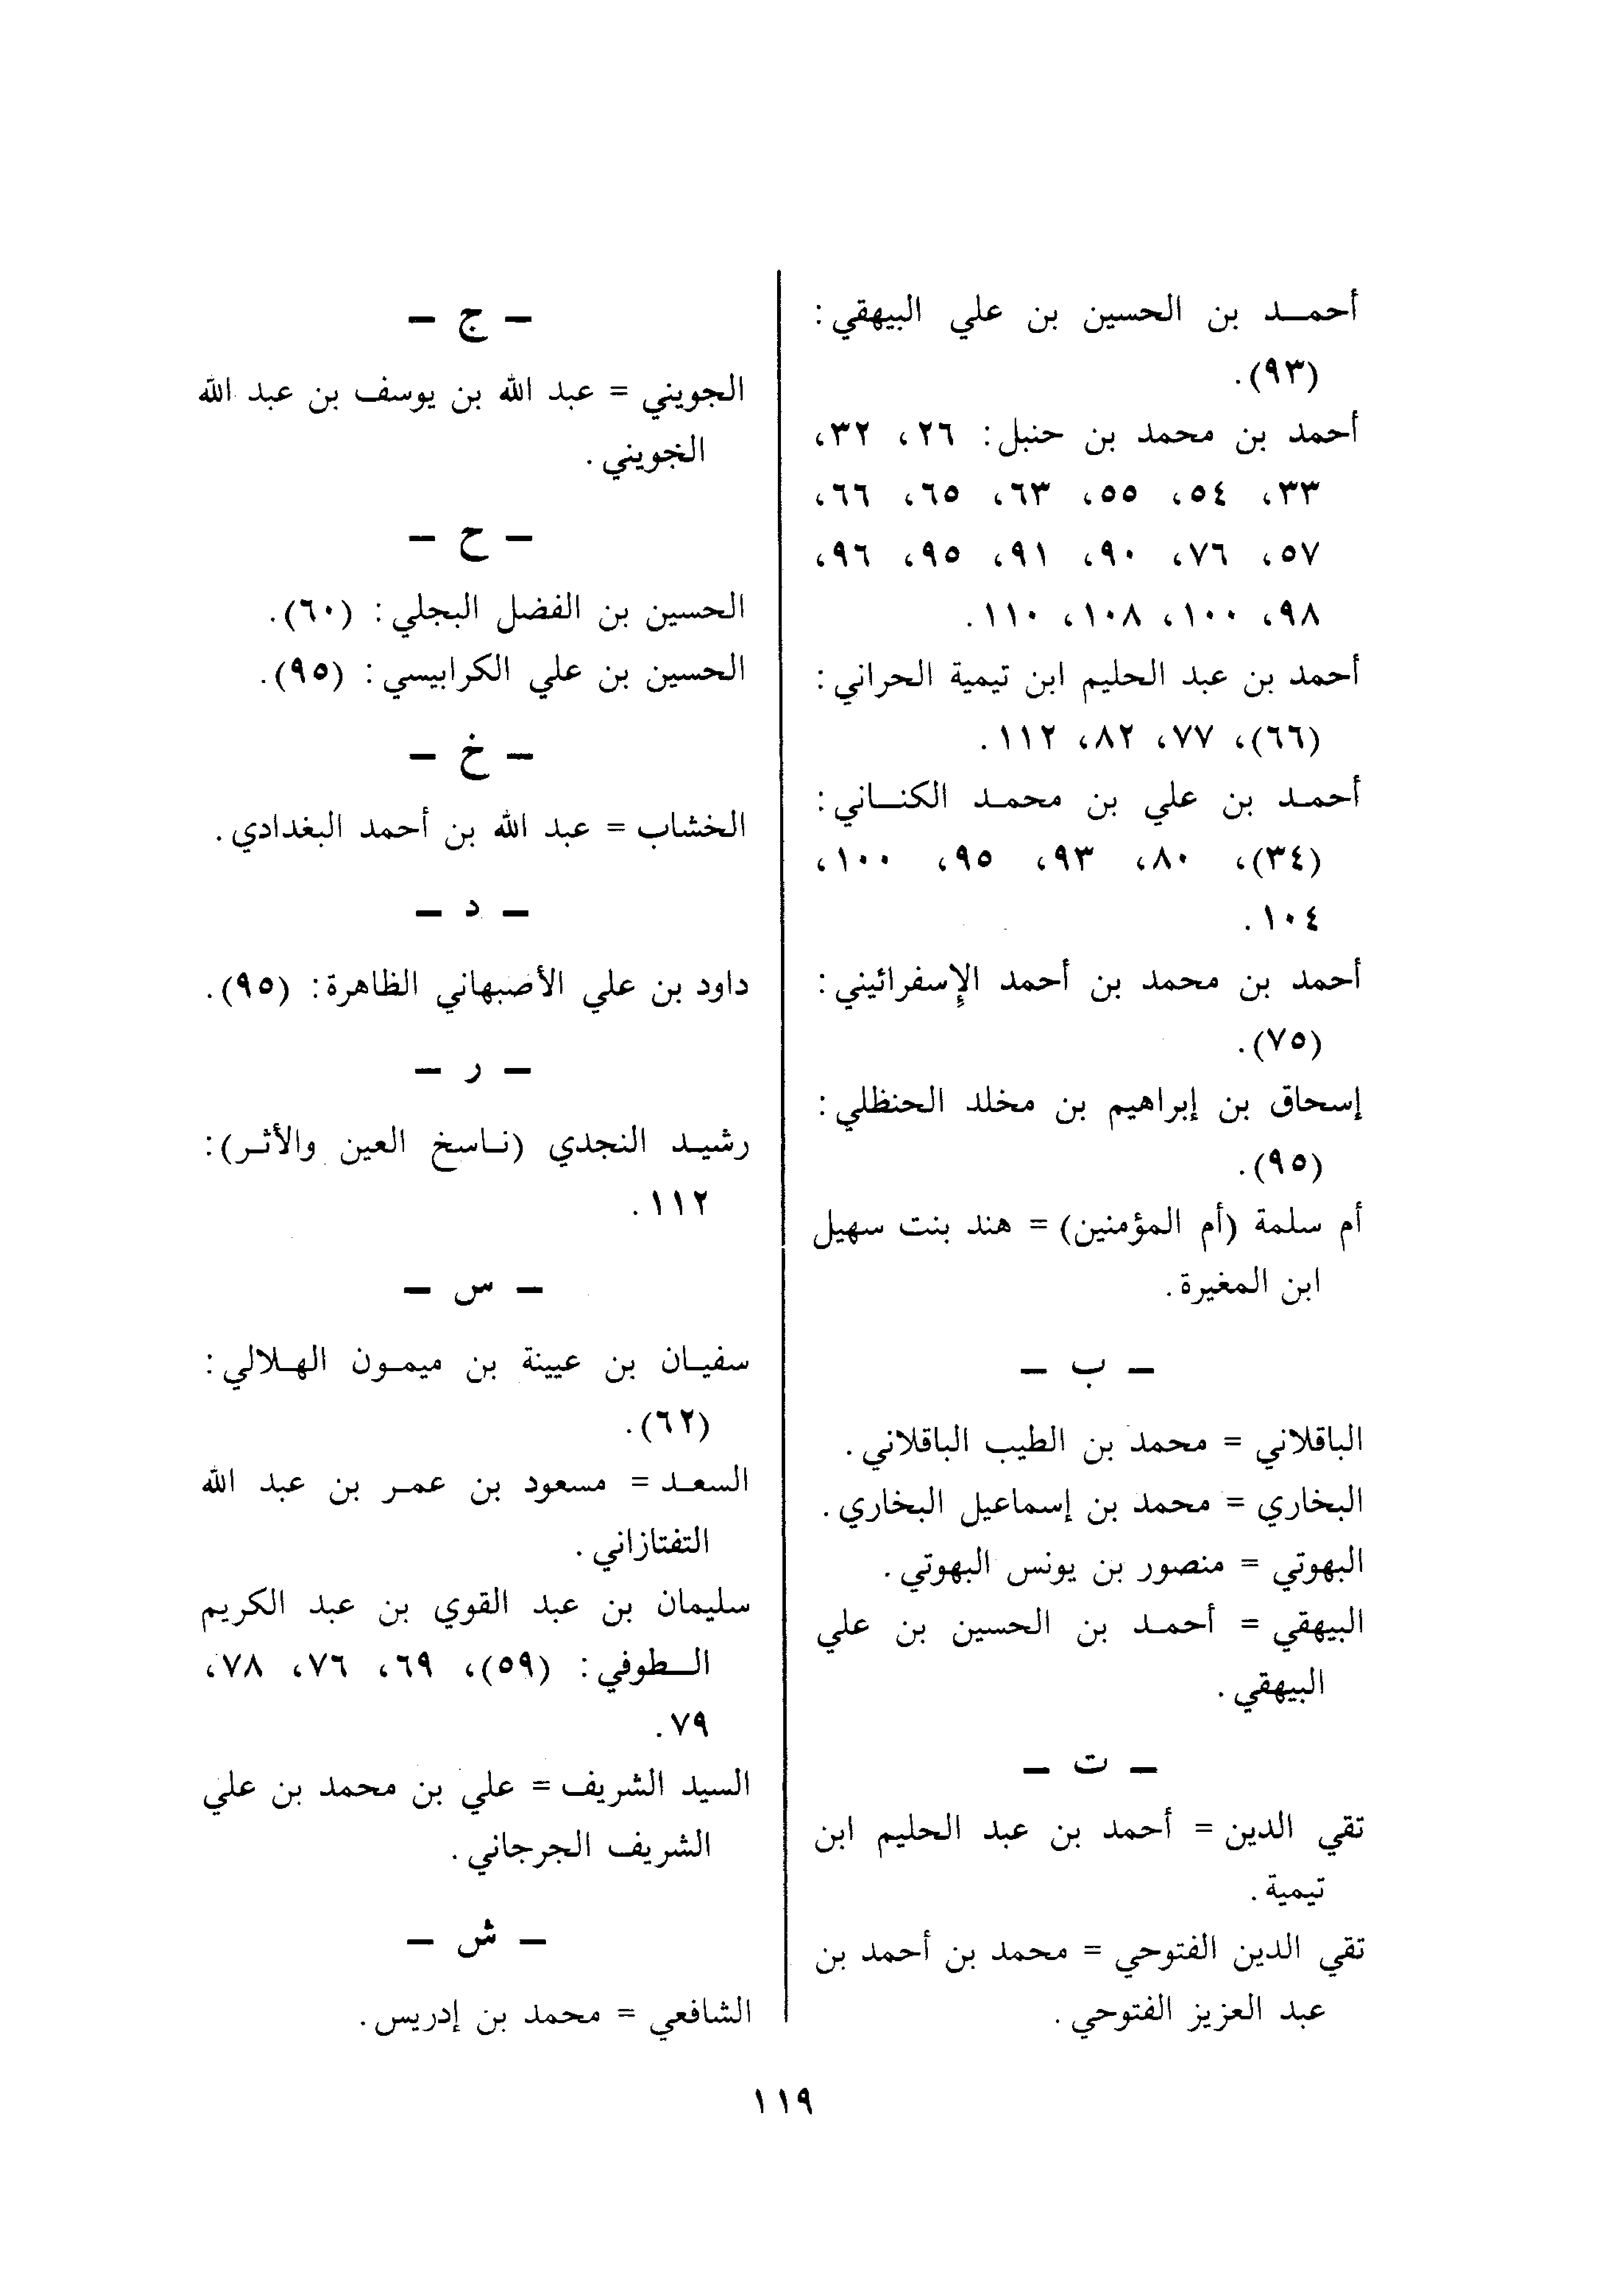 أحمد بن الحسين بن علي البيهقي:
(٩٣).
أحمد بن محمد بن حنبل: ٢٦، ٣٢،
٣٣، ٥٤، ٥٥، ٦٣، ٦٥، ٦٦،
٥٧، ٧٦، ٩٠، ٩١، ٩٥، ٩٦،
٩٨، ١٠٠، ١٠٨، ١١٠.
أحمد بن عبد الحليم ابن تيمية الحراني:
(٦٦)، ٧٧، ٨٢، ١١٢.
أحمد بن علي بن محمد الكناني:
(٣٤)، ٨٠، ٩٣، ٩٥، ١٠٠،
١٠٤.
أحمد بن محمد بن أحمد الإسفرائيني:
(٧٥).
إسحاق بن إبراهيم بن مخلد الحنظلي:
(٩٥).
أم سلمة (أم المؤمنين) = هند بنت سهيل
ابن المغيرة.
– ب –
الباقلاني = محمد بن الطيب الباقلاني.
البخاري = محمد بن إسماعيل البخاري.
البهوتي = منصور بن يونس البهوتي.
البيهقي = أحمد بن الحسين بن علي
البيهقي.
– ت –
تقي الدين = أحمد بن عبد الحليم ابن
تيمية.
تقي الدين الفتوحي = محمد بن أحمد بن
عبد العزيز الفتوحي.
– ج –
الجويني = عبد الله بن يوسف بن عبد الله
الخويني.
– ح –
الحسين بن الفضل البجلي: (٦٠).
الحسين بن علي الكرابيسي: (٩٥).
– خ –
الخشاب = عبد الله بن أحمد البغدادي.
– د –
داود بن علي الأصبهاني الظاهرة: (٩٥).
– ر –
رشيد النجدي (ناسخ العين والأثر):
١١٢.
– س –
سفيان بن عيينة بن ميمون الهلالي:
(٦٢).
السعد = مسعود بن عمر بن عبد الله
التفتازاني.
سليمان بن عبد القوي بن عبد الكريم
الطوفي: (٥٩)، ٦٩، ٧٦، ٧٨،
٧٩.
السيد الشريف = علي بن محمد بن علي
الشريف الجرجاني.
– ش –
الشافعي = محمد بن إدريس.
١١٩